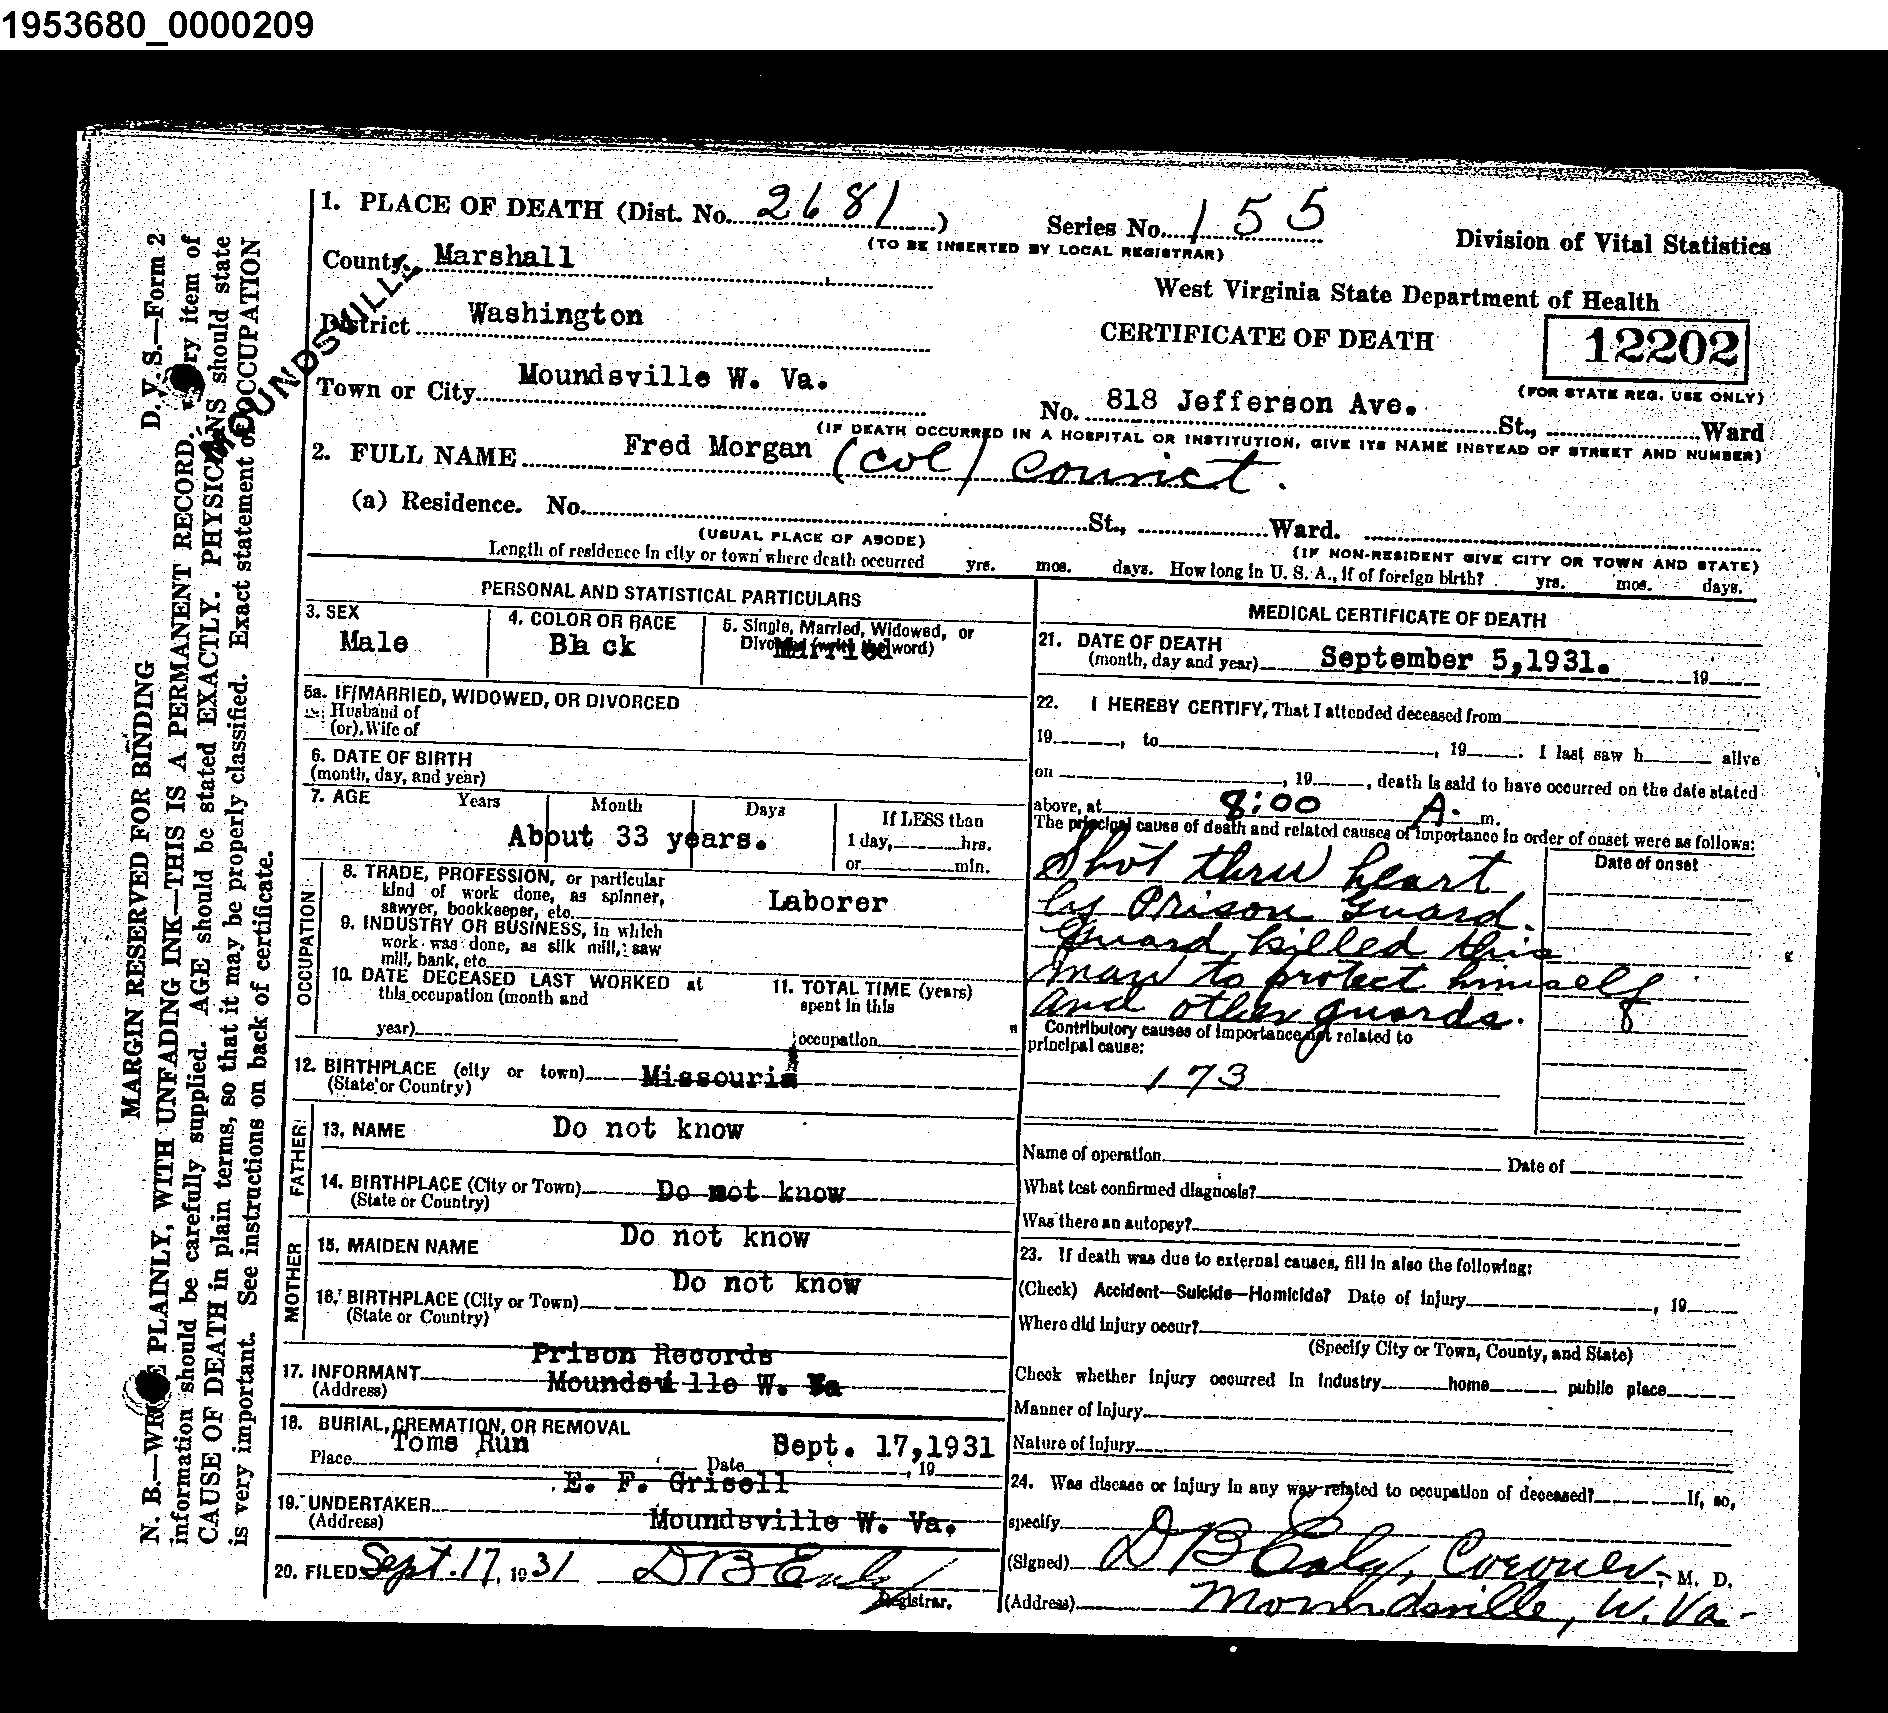 1953680_0000209
1. PLACE OF DEATH (Dist. No. 2681)
Series No. 155
(TO BE INSERTED BY LOCAL REGISTRAR)
Division of Vital Statistics
County, Marshall
West Virginia State Department of Health
District Washington
CERTIFICATE OF DEATH
12202
(FOR STATE REG. USE ONLY)
MOUNDSVILLE
Town or City Moundsville W. Va.
No. 818 Jefferson Ave. St., Ward
(IF DEATH OCCURRED IN A HOSPITAL OR INSTITUTION, GIVE ITS NAME INSTEAD OF STREET AND NUMBER)
2. FULL NAME Fred Morgan (col) convict.
(a) Residence. No. St., Ward.
(USUAL PLACE OF ABODE)
(IF NON-RESIDENT GIVE CITY OR TOWN AND STATE)
Length of residence in city or town where death occurred yrs. mos. days. How long in U. S. A., if of foreign birth? yrs. mos. days.
PERSONAL AND STATISTICAL PARTICULARS
3. SEX
Male
4. COLOR OR RACE
Black
5. Single, Married, Widowed, or
Divorced (write the word)
Married
5a. IF MARRIED, WIDOWED, OR DIVORCED
Husband of
(or) Wife of
6. DATE OF BIRTH
(month, day, and year)
7. AGE Years Month Days If LESS than
About 33 years.
1 day, hrs.
or min.
OCCUPATION
8. TRADE, PROFESSION, or particular
kind of work done, as spinner,
sawyer, bookkeeper, etc. Laborer
9. INDUSTRY OR BUSINESS, in which
work was done, as silk mill, saw
mill, bank, etc
10. DATE DECEASED LAST WORKED at
this occupation (month and
year)
11. TOTAL TIME (years)
spent in this
occupation
12. BIRTHPLACE (city or town) Missouri
(State or Country)
FATHER
13. NAME Do not know
14. BIRTHPLACE (City or Town) Do not know
(State or Country)
MOTHER
15. MAIDEN NAME Do not know
16. BIRTHPLACE (City or Town) Do not know
(State or Country)
17. INFORMANT Prison Records
(Address) Moundsville W. Va
18. BURIAL, CREMATION, OR REMOVAL
Place Toms Run Date Sept. 17,1931, 19
19. UNDERTAKER E. F. Grisell
(Address) Moundsville W. Va.
20. FILED Sept. 17, 1931 D B Ealy
Registrar.
MEDICAL CERTIFICATE OF DEATH
21. DATE OF DEATH
(month, day and year) September 5,1931. 19
22. I HEREBY CERTIFY, That I attended deceased from
19 , to , 19 . I last saw h alive
on , 19 , death is said to have occurred on the date stated
above, at 8:00 A. m.
The principal cause of death and related causes of importance in order of onset were as follows:
Date of onset
Shot thru heart
by Prison Guard.
Guard killed this
man to protect himself
and other guards.
Contributory causes of importance not related to
principal cause:
173
Name of operation Date of
What test confirmed diagnosis?
Was there an autopsy?
23. If death was due to external causes, fill in also the following:
(Check) Accident—Suicide—Homicide? Date of injury , 19
Where did injury occur?
(Specify City or Town, County, and State)
Check whether injury occurred in industry home public place
Manner of Injury
Nature of Injury
24. Was disease or injury in any way related to occupation of deceased? If, so,
specify
(Signed) D B Ealy, Coroner, M. D.
(Address) Moundsville, W. Va.
D. V. S.—Form 2
MARGIN RESERVED FOR BINDING
N. B.—WRITE PLAINLY, WITH UNFADING INK—THIS IS A PERMANENT RECORD. Every item of
information should be carefully supplied. AGE should be stated EXACTLY. PHYSICIANS should state
CAUSE OF DEATH in plain terms, so that it may be properly classified. Exact statement of OCCUPATION
is very important. See instructions on back of certificate.